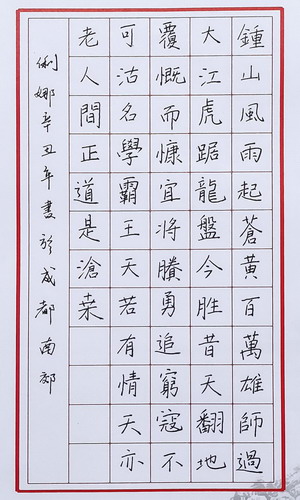 鍾山風雨起蒼黃百萬雄師過
大江虎踞龍盤今胜昔天翻地
覆慨而慷宜將賸勇追窮寇不
可沽名學霸王天若有情天亦
老人間正道是滄桒
俐娜辛丑年書於成都南郊